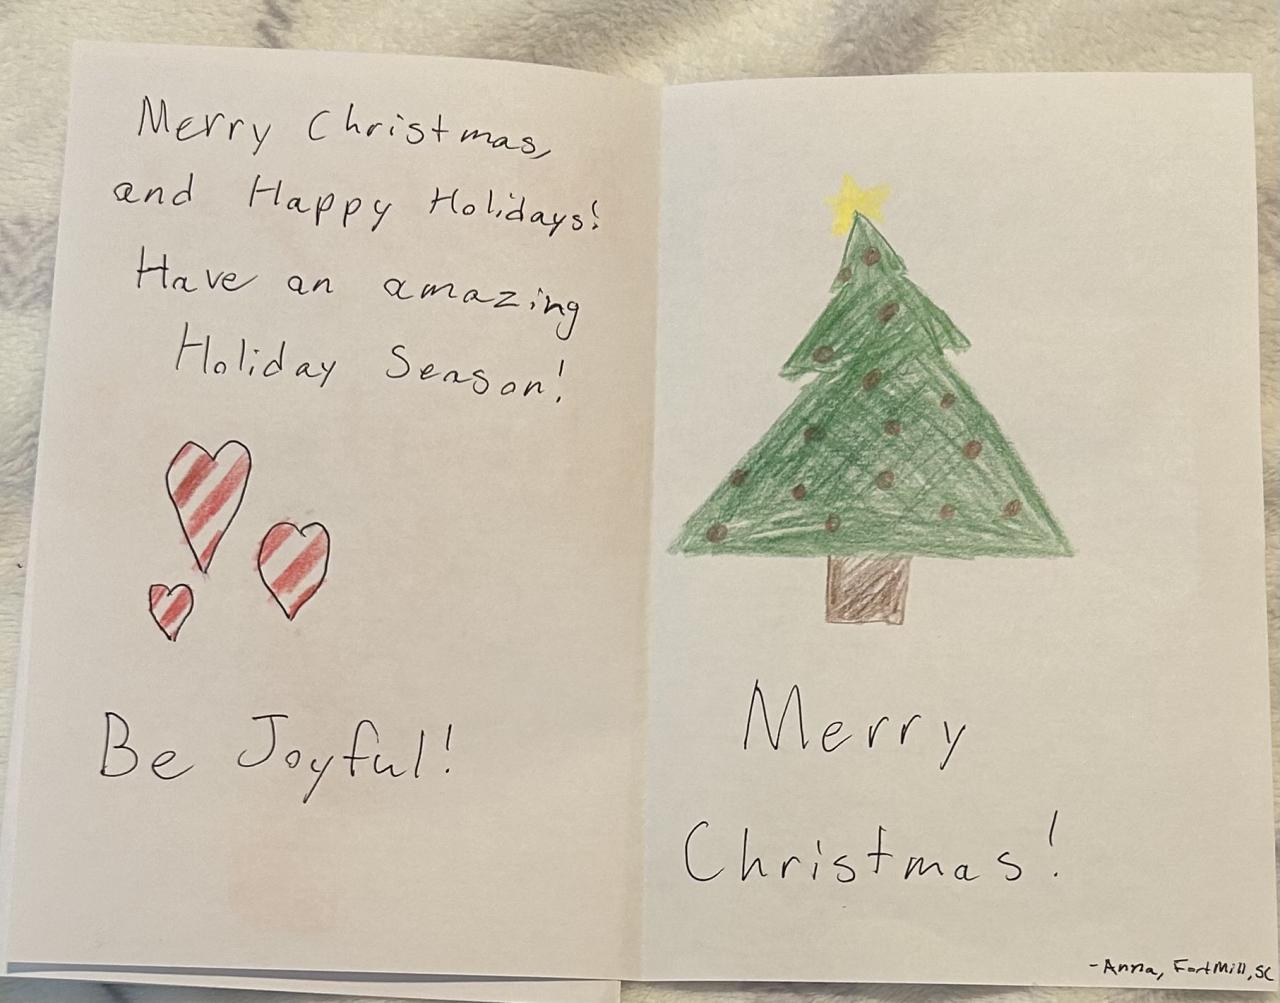 Merry Christmas,
and Happy Holidays!
Have an amazing
Holiday Season!
Be Joyful!
Merry
Christmas!
-Anna, Fort Mill, SC